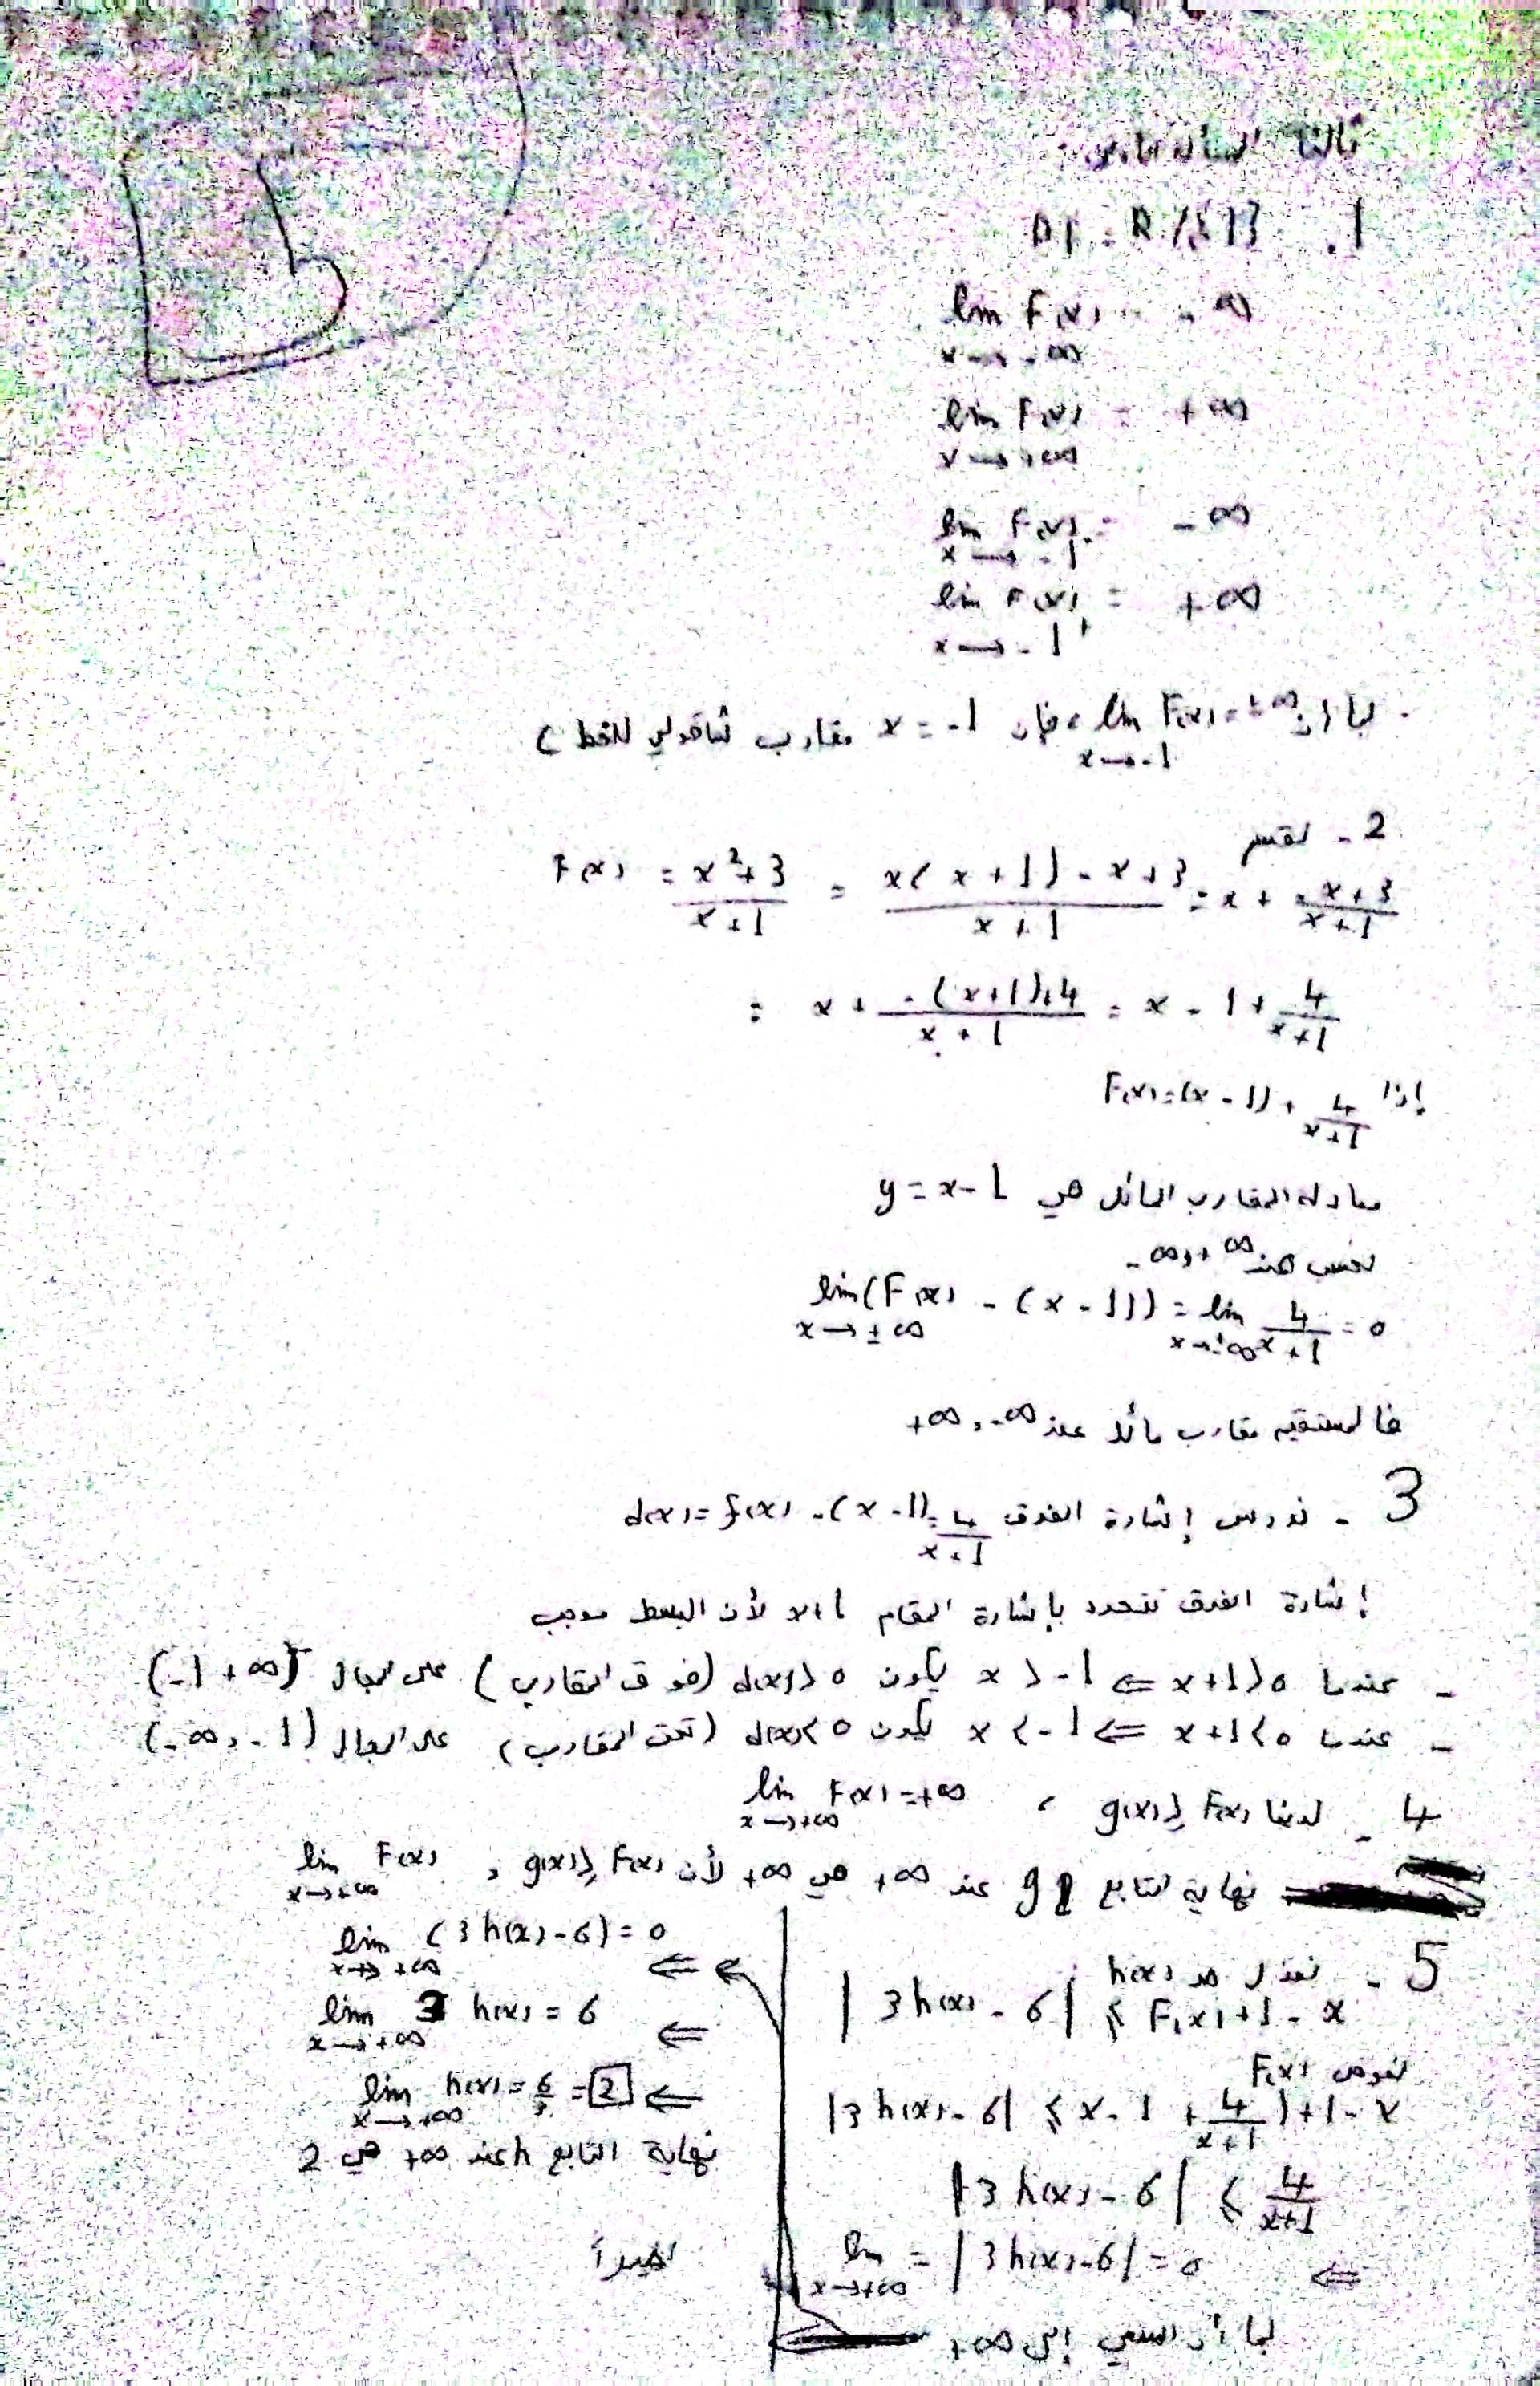 ثالثا المسألة
1. Df = R/{-1}
lim F(x) = -∞
x→-∞
lim F(x) = +∞
x→+∞
lim F(x) = -∞
x→-1
lim F(x) = +∞
x→-1⁺
- بما أن lim F(x) = ±∞ فإن x = -1 مقارب شاقولي للخط C
x→-1
2 - نقسم
F(x) = (x²+3)/(x+1) = (x(x+1)-x+3)/(x+1) = x + (-x+3)/(x+1)
= x + (-(x+1)+4)/(x+1) = x - 1 + 4/(x+1)
إذا F(x)=(x-1)+ 4/(x+1)
معادلة المقارب المائل هي y = x-1
عند +∞ و -∞
lim(F(x) - (x-1)) = lim 4/(x+1) = 0
x→±∞ x→±∞
فالمستقيم مقارب مائل عند -∞ , +∞
3 - ندرس إشارة الفرق d(x) = f(x) - (x-1) = 4/(x+1)
إشارة الفرق تتحدد بإشارة المقام x+1 لأن البسط موجب
- عندما x+1>0 ⇐ x>-1 يكون d(x)>0 (فوق المقارب) على المجال (-1 +∞)
- عندما x+1<0 ⇐ x<-1 يكون d(x)<0 (تحت المقارب) على المجال (-∞, -1)
4 - لدينا g(x) ≥ F(x) ، lim F(x) = +∞
x→+∞
نهاية التابع g عند +∞ هي +∞ لأن g(x) ≥ F(x) , lim F(x)
x→+∞
5 - h(x)
|3h(x) - 6| ≤ F(x)+1-x
نعوض F(x)
|3h(x)-6| ≤ x-1 + 4/(x+1))+1-x
|3h(x)-6| ≤ 4/(x+1)
⇐ lim = |3h(x)-6| = 0
x→+∞
بما أن إلى +∞
⇐ lim (3h(x)-6) = 0
x→+∞
⇐ lim 3 h(x) = 6
x→+∞
⇐ lim h(x) = 6/3 = 2
x→+∞
نهاية التابع h عند +∞ هي 2